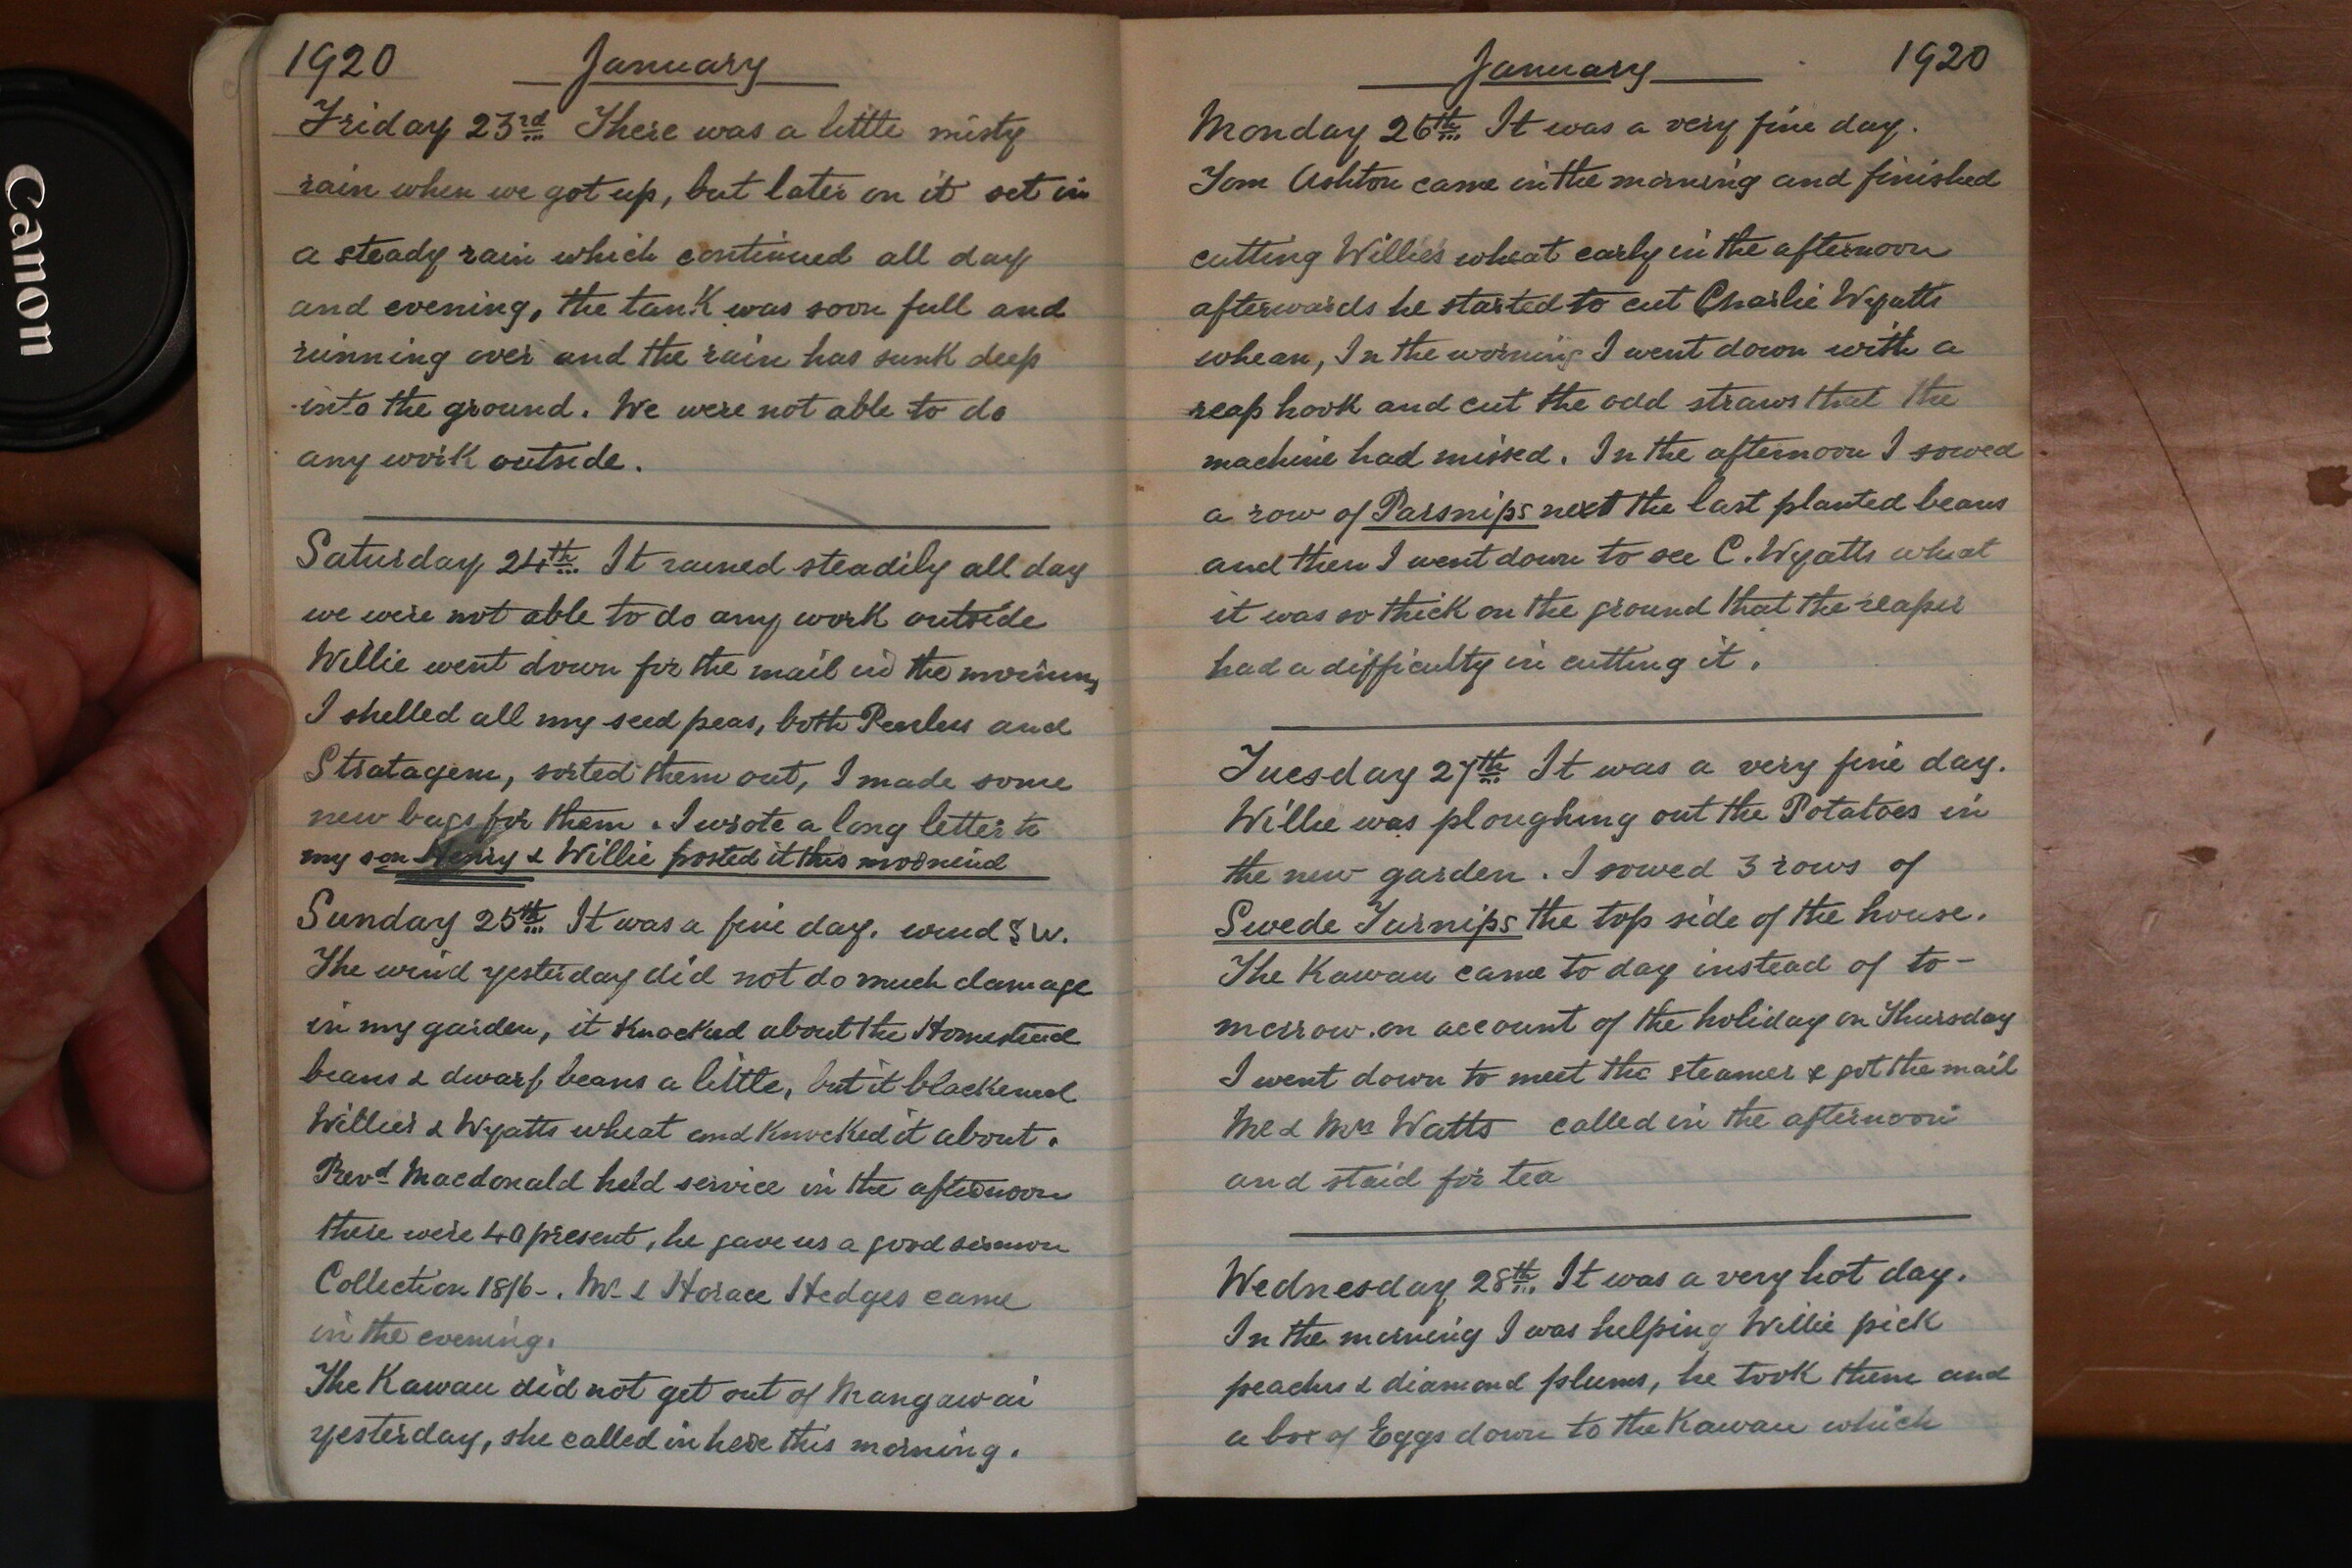 Canon
1920 January
Friday 23rd There was a little misty
rain when we got up, but later on it set in
a steady rain which continued all day
and evening, the tank was soon full and
running over and the rain has sunk deep
into the ground. We were not able to do
any work outside.
Saturday 24th It rained steadily all day
we were not able to do any work outside
Willie went down for the mail in the morning
I shelled all my seed peas, both Peerless and
Stratagem, sorted them out, I made some
new bags for them. I wrote a long letter to
my son Henry & Willie posted it this
Sunday 25th It was a fine day. wind SW.
The wind yesterday did not do much damage
in my garden, it knocked about the Homestead
beans & dwarf beans a little, but it blackened
Willie's & Wyatts wheat and knocked it about.
Revd Macdonald held service in the afternoon
there were 40 present, he gave us a good sermon
Collection 18/6-. Mr & Horace Hedges came
in the evening.
The Kawau did not get out of Mangawai
yesterday, she called in here this morning.
January 1920
Monday 26th It was a very fine day.
Tom Ashton came in the morning and finished
cutting Willie's wheat early in the afternoon
afterwards he started to cut Charlie Wyatts
whean, In the morning I went down with a
reap hook and cut the odd straws that the
machine had missed. In the afternoon I sowed
a row of Parsnips next the last planted beans
and then I went down to see C. Wyatts wheat
it was so thick on the ground that the reaper
had a difficulty in cutting it.
Tuesday 27th It was a very fine day.
Willie was ploughing out the Potatoes in
the new garden. I sowed 3 rows of
Swede Turnips the top side of the house.
The Kawau came to day instead of to-
morrow. on account of the holiday on Thursday
I went down to meet the steamer & got the mail
Mr & Mrs Watts called in the afternoon
and staid for tea
Wednesday 28th It was a very hot day.
In the morning I was helping Willie pick
peaches & diamond plums, he took them and
a box of Eggs down to the Kawau which